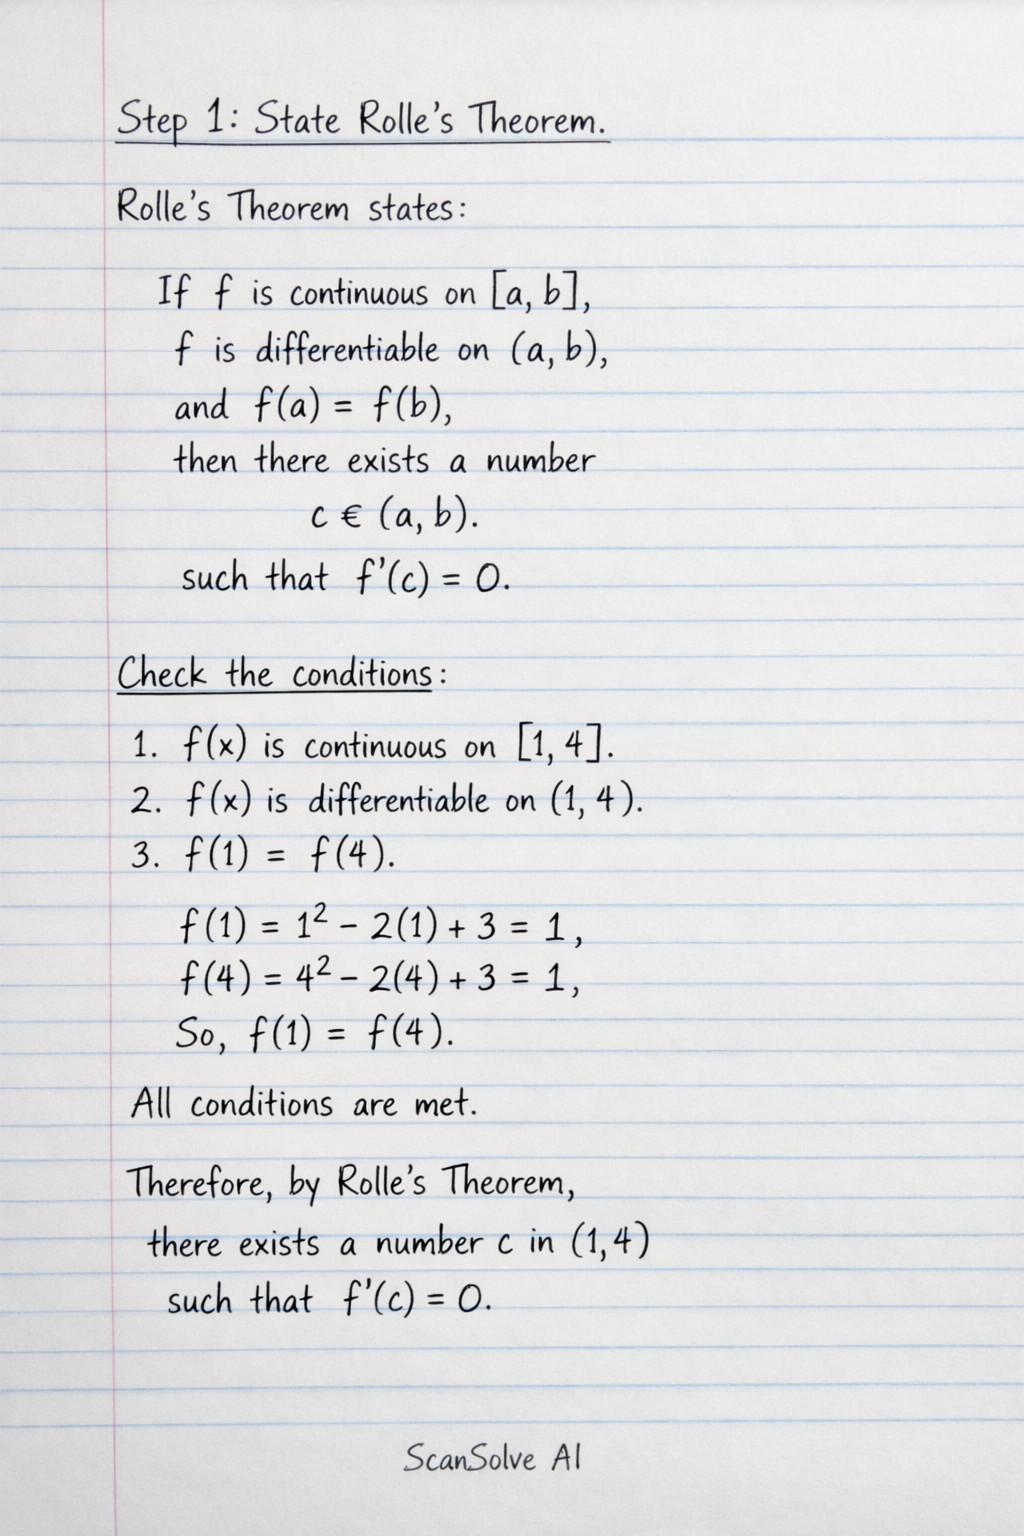 Step 1: State Rolle's Theorem.
Rolle's Theorem states:
If f is continuous on [a, b],
f is differentiable on (a, b),
and f(a) = f(b),
then there exists a number
c € (a, b).
such that f'(c) = 0.
Check the conditions:
1. f(x) is continuous on [1, 4].
2. f(x) is differentiable on (1, 4).
3. f(1) = f(4).
f(1) = 1² - 2(1) + 3 = 1,
f(4) = 4² - 2(4) + 3 = 1,
So, f(1) = f(4).
All conditions are met.
Therefore, by Rolle's Theorem,
there exists a number c in (1,4)
such that f'(c) = 0.
ScanSolve AI